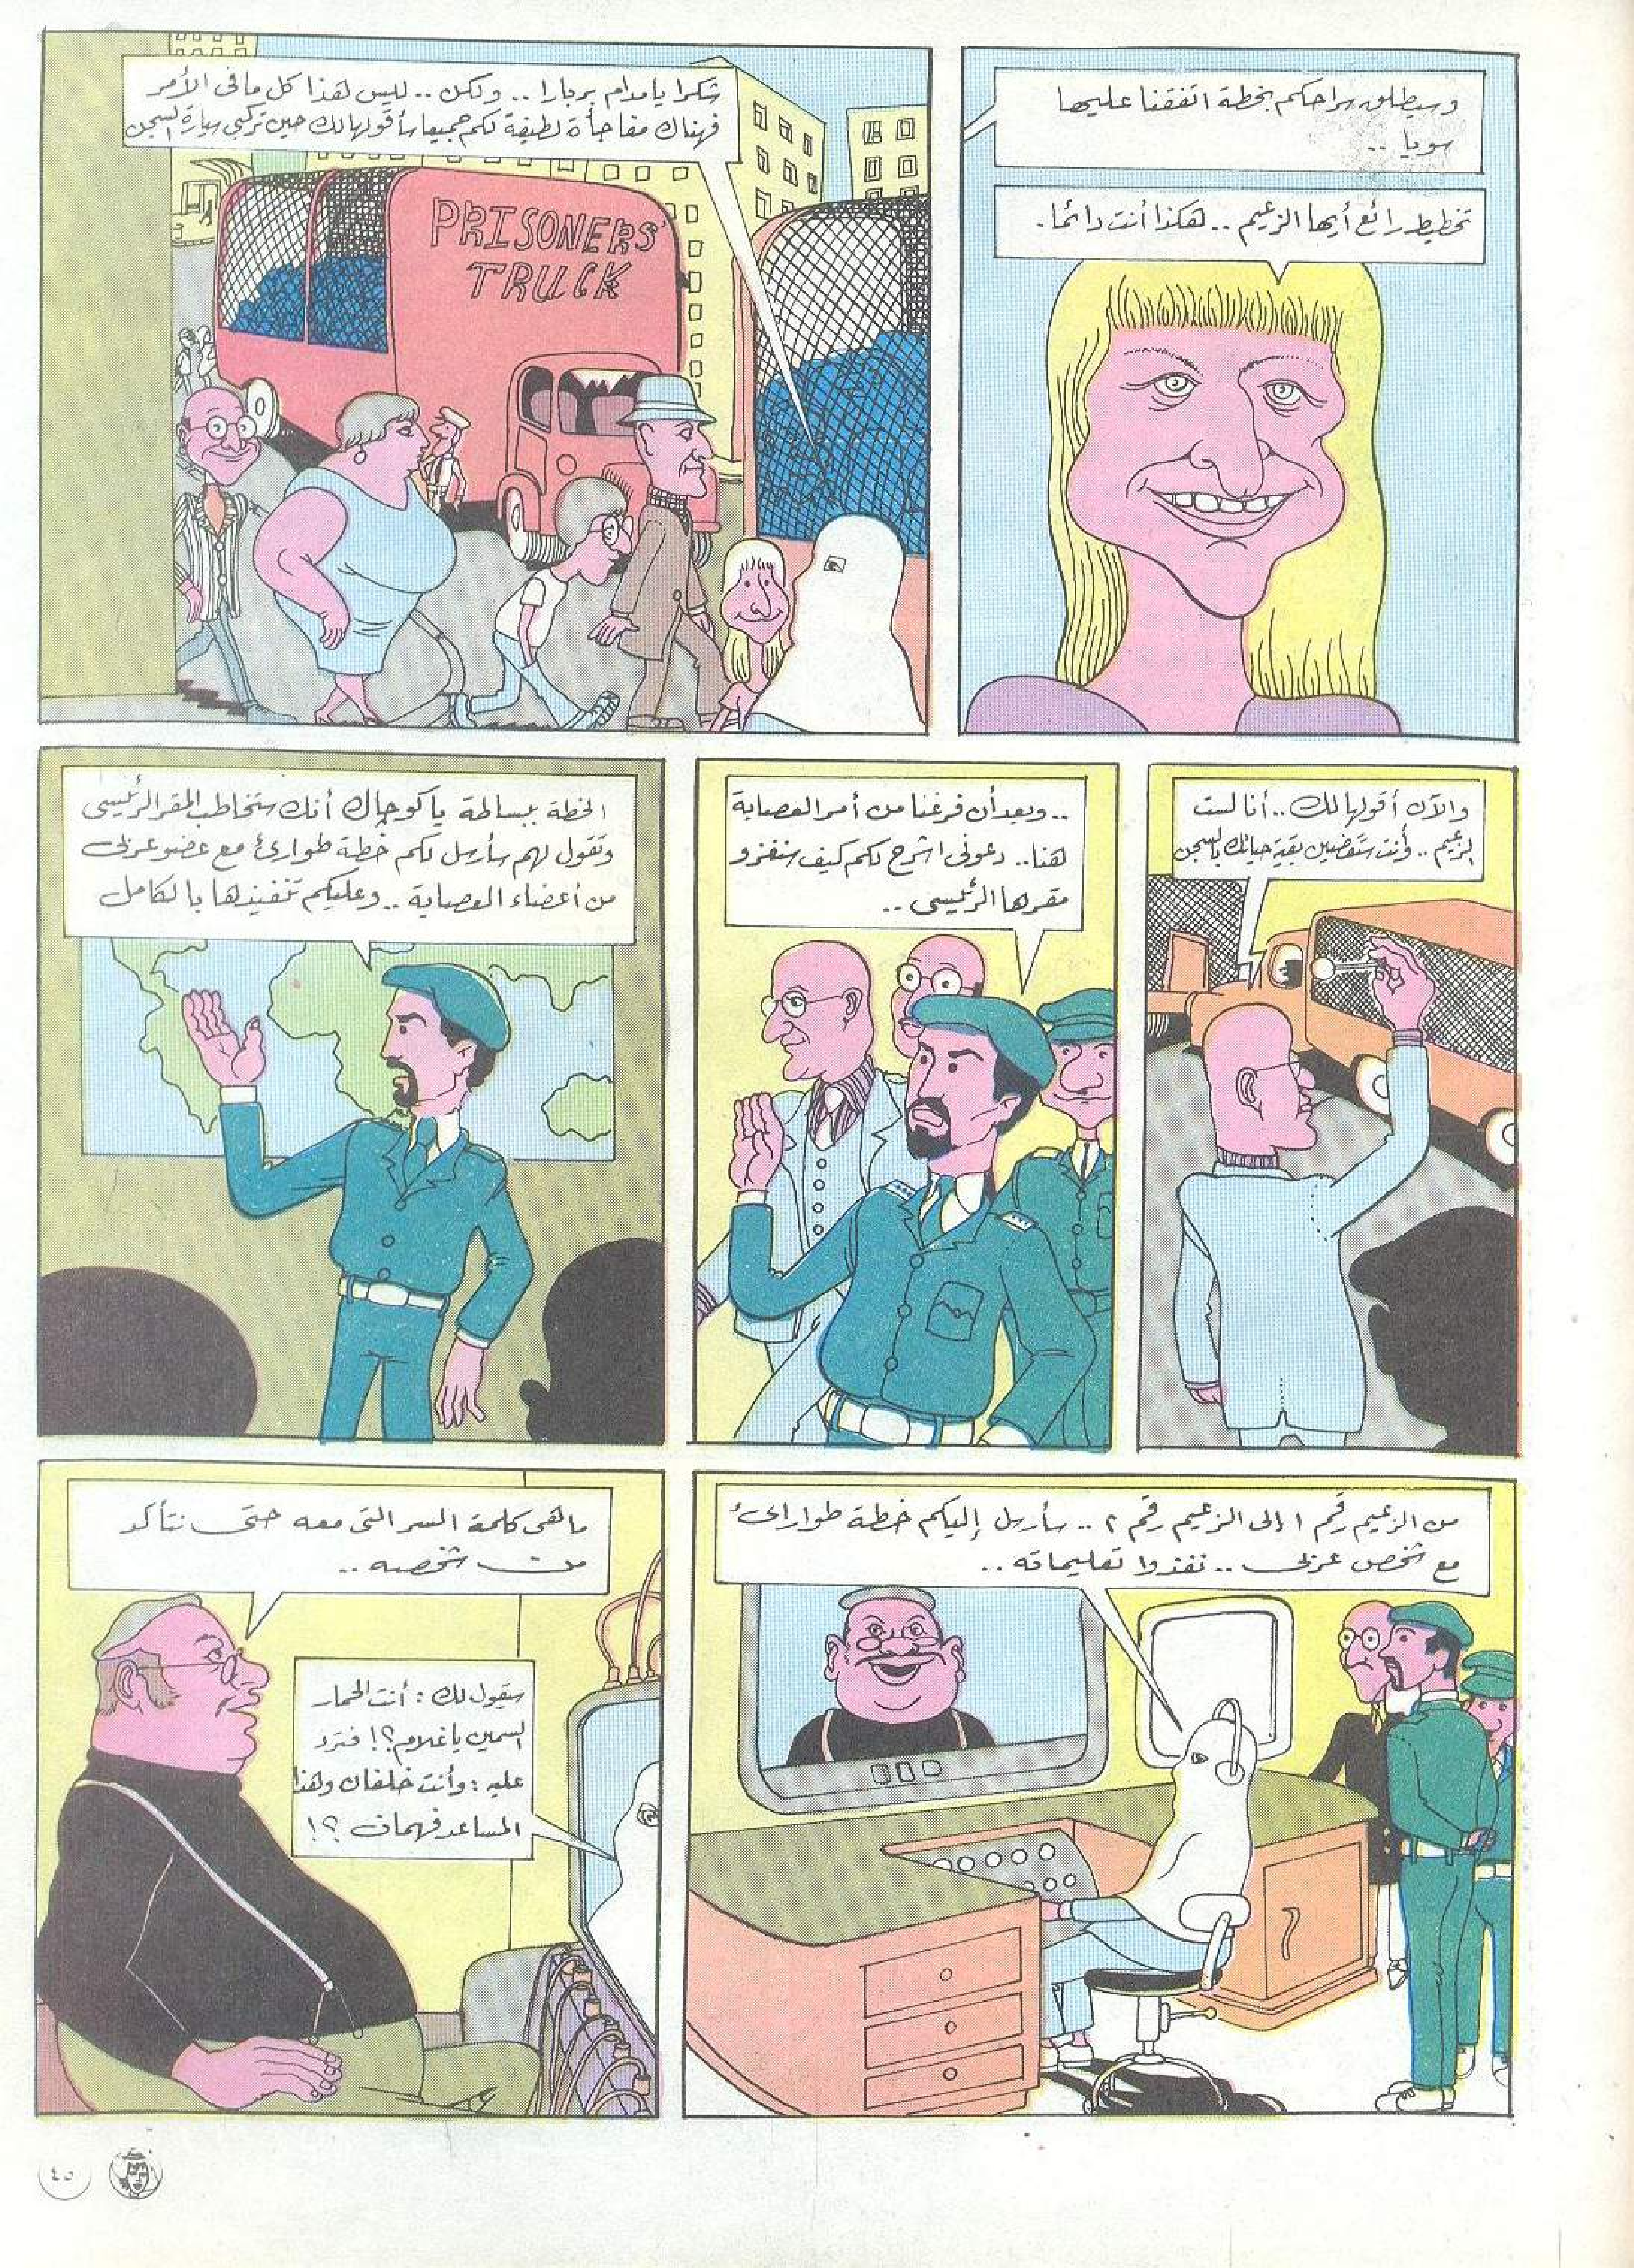 وسيطلق سراحكم بخطة اتفقنا عليها
سويا ..
تخطيط رائع أيها الزعيم .. هكذا أنت دائما.
شكرا يا مدام بربارا .. ولكن .. ليس هذا كل ما فى الأمر
فهناك مفاجأة لطيفة لكم جميعا سأقولها لك حين تركبى سيارة السجن
PRISONERS'
TRUCK
والآن أقولها لك .. أنا لست
الزعيم .. وأنت ستقضين بقية حياتك بالسجن
.. وبعد أن فرغنا من أمر العصابة
هنا .. دعونى اشرح لكم كيف سنغزو
مقرها الرئيسى ..
الخطة ببساطة يا كوجاك أنك ستخاطب المقر الرئيسى
وتقول لهم سأرسل لكم خطة طوارئ مع عضو عربى
من أعضاء العصابة .. وعليكم تنفيذها بالكامل
من الزعيم رقم ١ إلى الزعيم رقم ٢ .. سأرسل إليكم خطة طوارائ
مع شخص عربى .. نفذوا تعليماته ..
ما هى كلمة السر التى معه حتى نتأكد
من شخصه ..
سيقول لك : أنت الحمار
السمين يا غلام ؟! فترد
عليه : وأنت خلفان وهذا
المساعد فهمان ؟!
٤٥